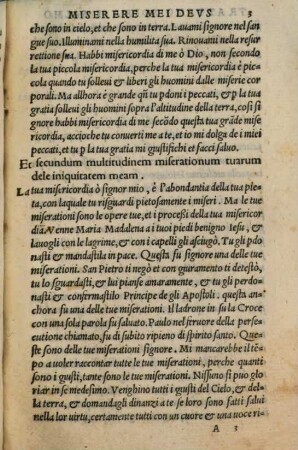 MISERERE MEI DEVS 3
che sono in cielo, et che sono in terra. Lauami signore nel san
gue suo. Illuminami nella humilita sua. Rinouami nella resur
rettione sua. Habbi misericordia di me ò Dio, non secondo
la tua piccola misericordia, perche la tua misericordia è pic
cola quando tu solleui et liberi gli huomini dalle miserie cor
porali. Ma allhora è grande quãdo tu pdoni i peccati, et p la tua
gratia solleui gli huomini sopra l'altitudine della terra, cosi si
gnore habbi misericordia di me secõdo questa tua grãde mise
ricordia, accioche tu conuerti me a te, et io mi dolga de i miei
peccati, et tu p la tua gratia mi giustifichi et facci saluo.
Et secundum multitudinem miserationum tuarum
dele iniquitatem meam.
La tua misericordia ò signor mio, è l'abondantia della tua pie
ta, con laquale tu risguardi pietosamente i miseri. Ma le tue
miserationi sono le opere tue, et i processi della tua misericor
dia. Venne Maria Madalena a i tuoi piedi benigno Iesu, et
lauogli con le lagrime, et con i capelli gli asciugò. Tu gli pdo
nasti et mandastila in pace. Questa fu signore una delle tue
miserationi. San Pietro ti negò et con giuramento ti detestò,
tu lo sguardasti, et lui pianse amaramente, et tu gli perdo
nasti et confermastilo Principe de gli Apostoli. questa an
chora fu una delle tue miserationi. Il ladrone in su la Croce
con una sola parola fu saluato. Paulo nel feruore della perse
cutione chiamato, fu di subito ripieno di spirito santo. Que
ste sono delle tue miserationi signore. Mi mancarebbe il tẽ
po a uoler raccontar tutte le tue miserationi, perche quanti
sono i giusti, tante sono le tue miserationi. Nissuno si puo glo
riar in se medesimo. Venghino tutti i giusti del Cielo, et del
la terra, et domandagli dinanzi a te se loro sono fatti salui
nella lor uirtu, certamente tutti con un cuore et una uoce ri=
A 3